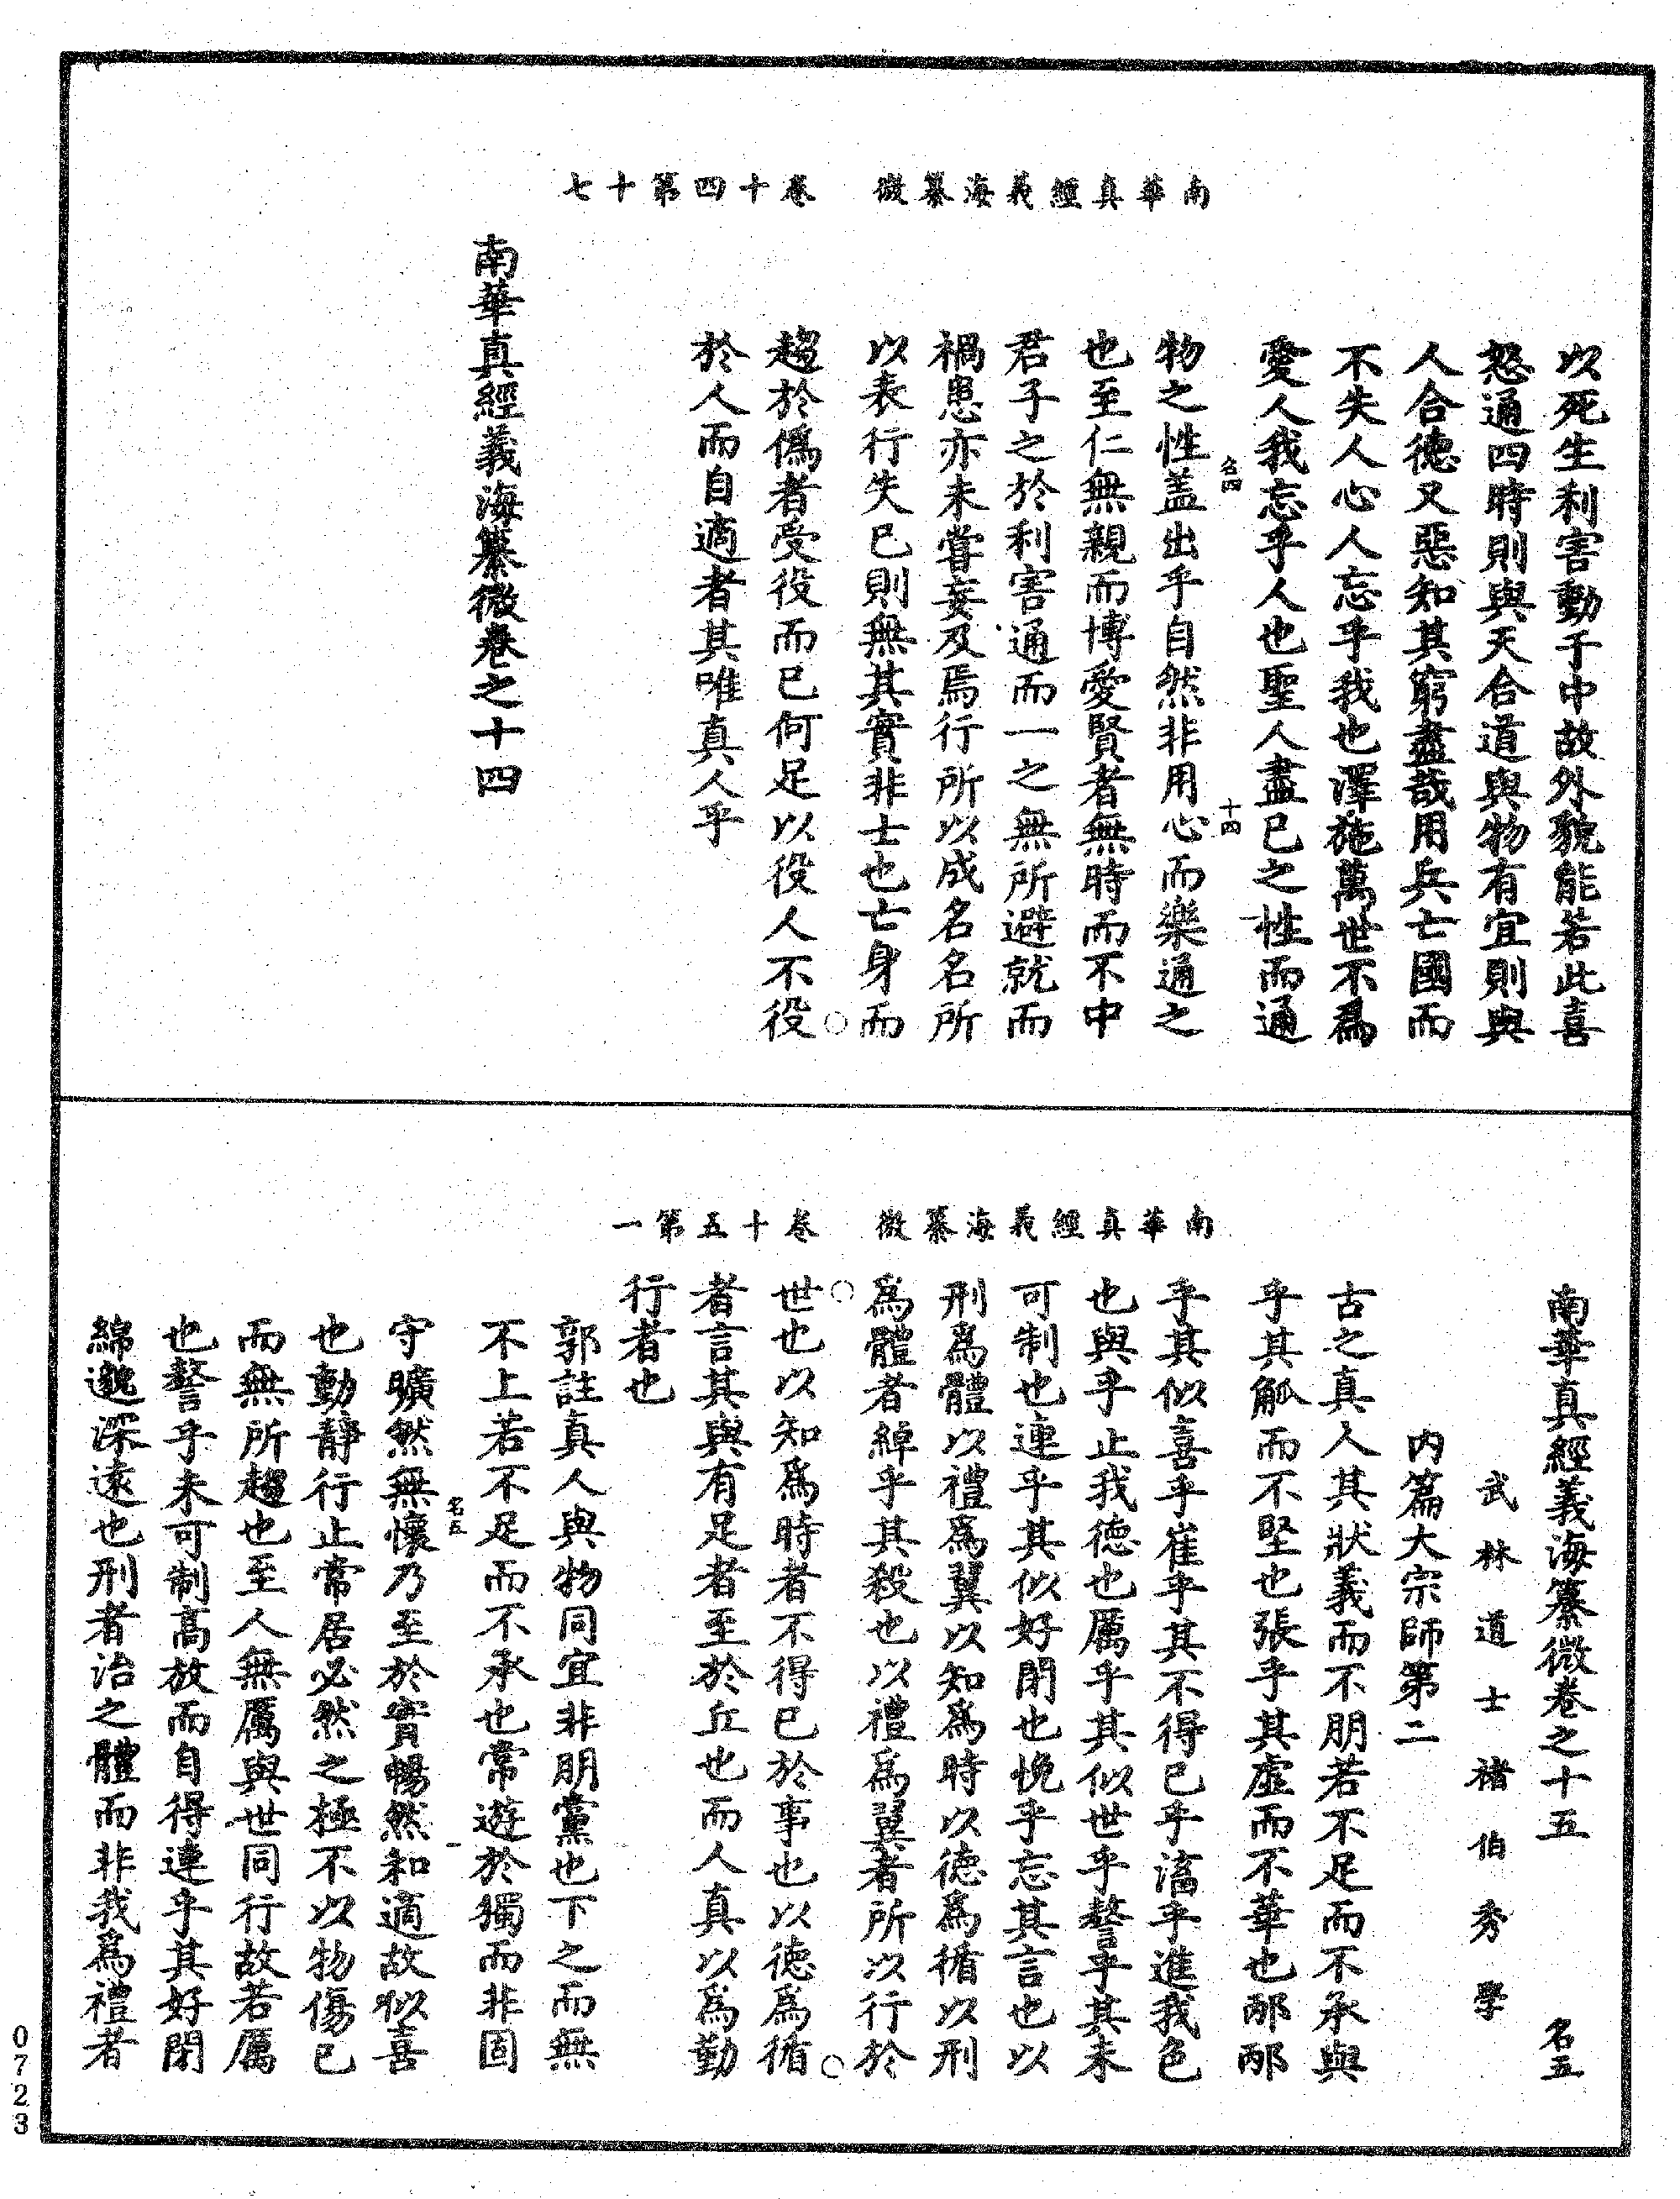 南華真經義海纂微　卷十四第十七
以死生利害動于中故外貌能若此喜
怒通四時則與天合道與物有宜則與
人合德又惡知其窮盡哉用兵亡國而
不失人心人忘乎我也澤施萬世不爲
愛人我忘乎人也聖人盡已之性而通
名四　十四
物之性盖出乎自然非用心而樂通之
也至仁無親而博愛賢者無時而不中
君子之於利害通而一之無所避就而
禍患亦未嘗妄及焉行所以成名名所
以表行失已則無其實非士也亡身而
趨於僞者受役而已何足以役人不役
於人而自適者其唯真人乎
南華真經義海纂微卷之十四
南華真經義海纂微　卷十五第一
南華真經義海纂微卷之十五　名五
武林道士褚伯秀學
内篇大宗師第二
古之真人其狀義而不朋若不足而不承與
乎其觚而不堅也張乎其虛而不華也邴邴
乎其似喜乎崔乎其不得已乎滀乎進我色
也與乎止我德也厲乎其似世乎謷乎其未
可制也連乎其似好閉也悗乎忘其言也以
刑爲體以禮爲翼以知爲時以德爲循以刑
爲體者綽乎其殺也以禮爲翼者所以行於
世也以知爲時者不得已於事也以德爲循
者言其與有足者至於丘也而人真以爲勤
行者也
郭註真人與物同宜非朋黨也下之而無
不上若不足而不承也常遊於獨而非固
名五　一
守曠然無懷乃至於實暢然和適故似喜
也動靜行止常居必然之極不以物傷已
而無所趨也至人無厲與世同行故若厲
也謷乎未可制高放而自得連乎其好閉
綿邈深遠也刑者治之體而非我爲禮者
0723